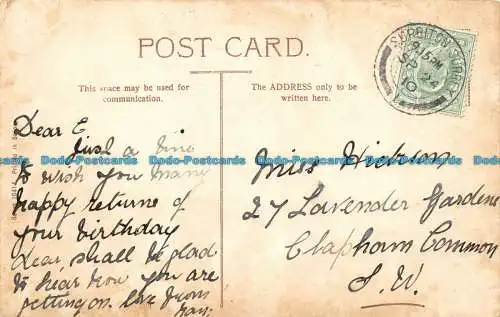 POST CARD.
This space may be used for
communication.
The ADDRESS only to be
written here.
SURBITON SURREY
Dear E
Just a line
to wish you many
happy returns of
your birthday
dear, shall be glad
to hear how you are
getting on. love from
May.
Miss Hibson
27 Lavender Gardens
Clapham Common
S.W.
Dodo-Postcards Dodo-Postcards Dodo-Postcards Dodo-Postcards Dodo-Postcards